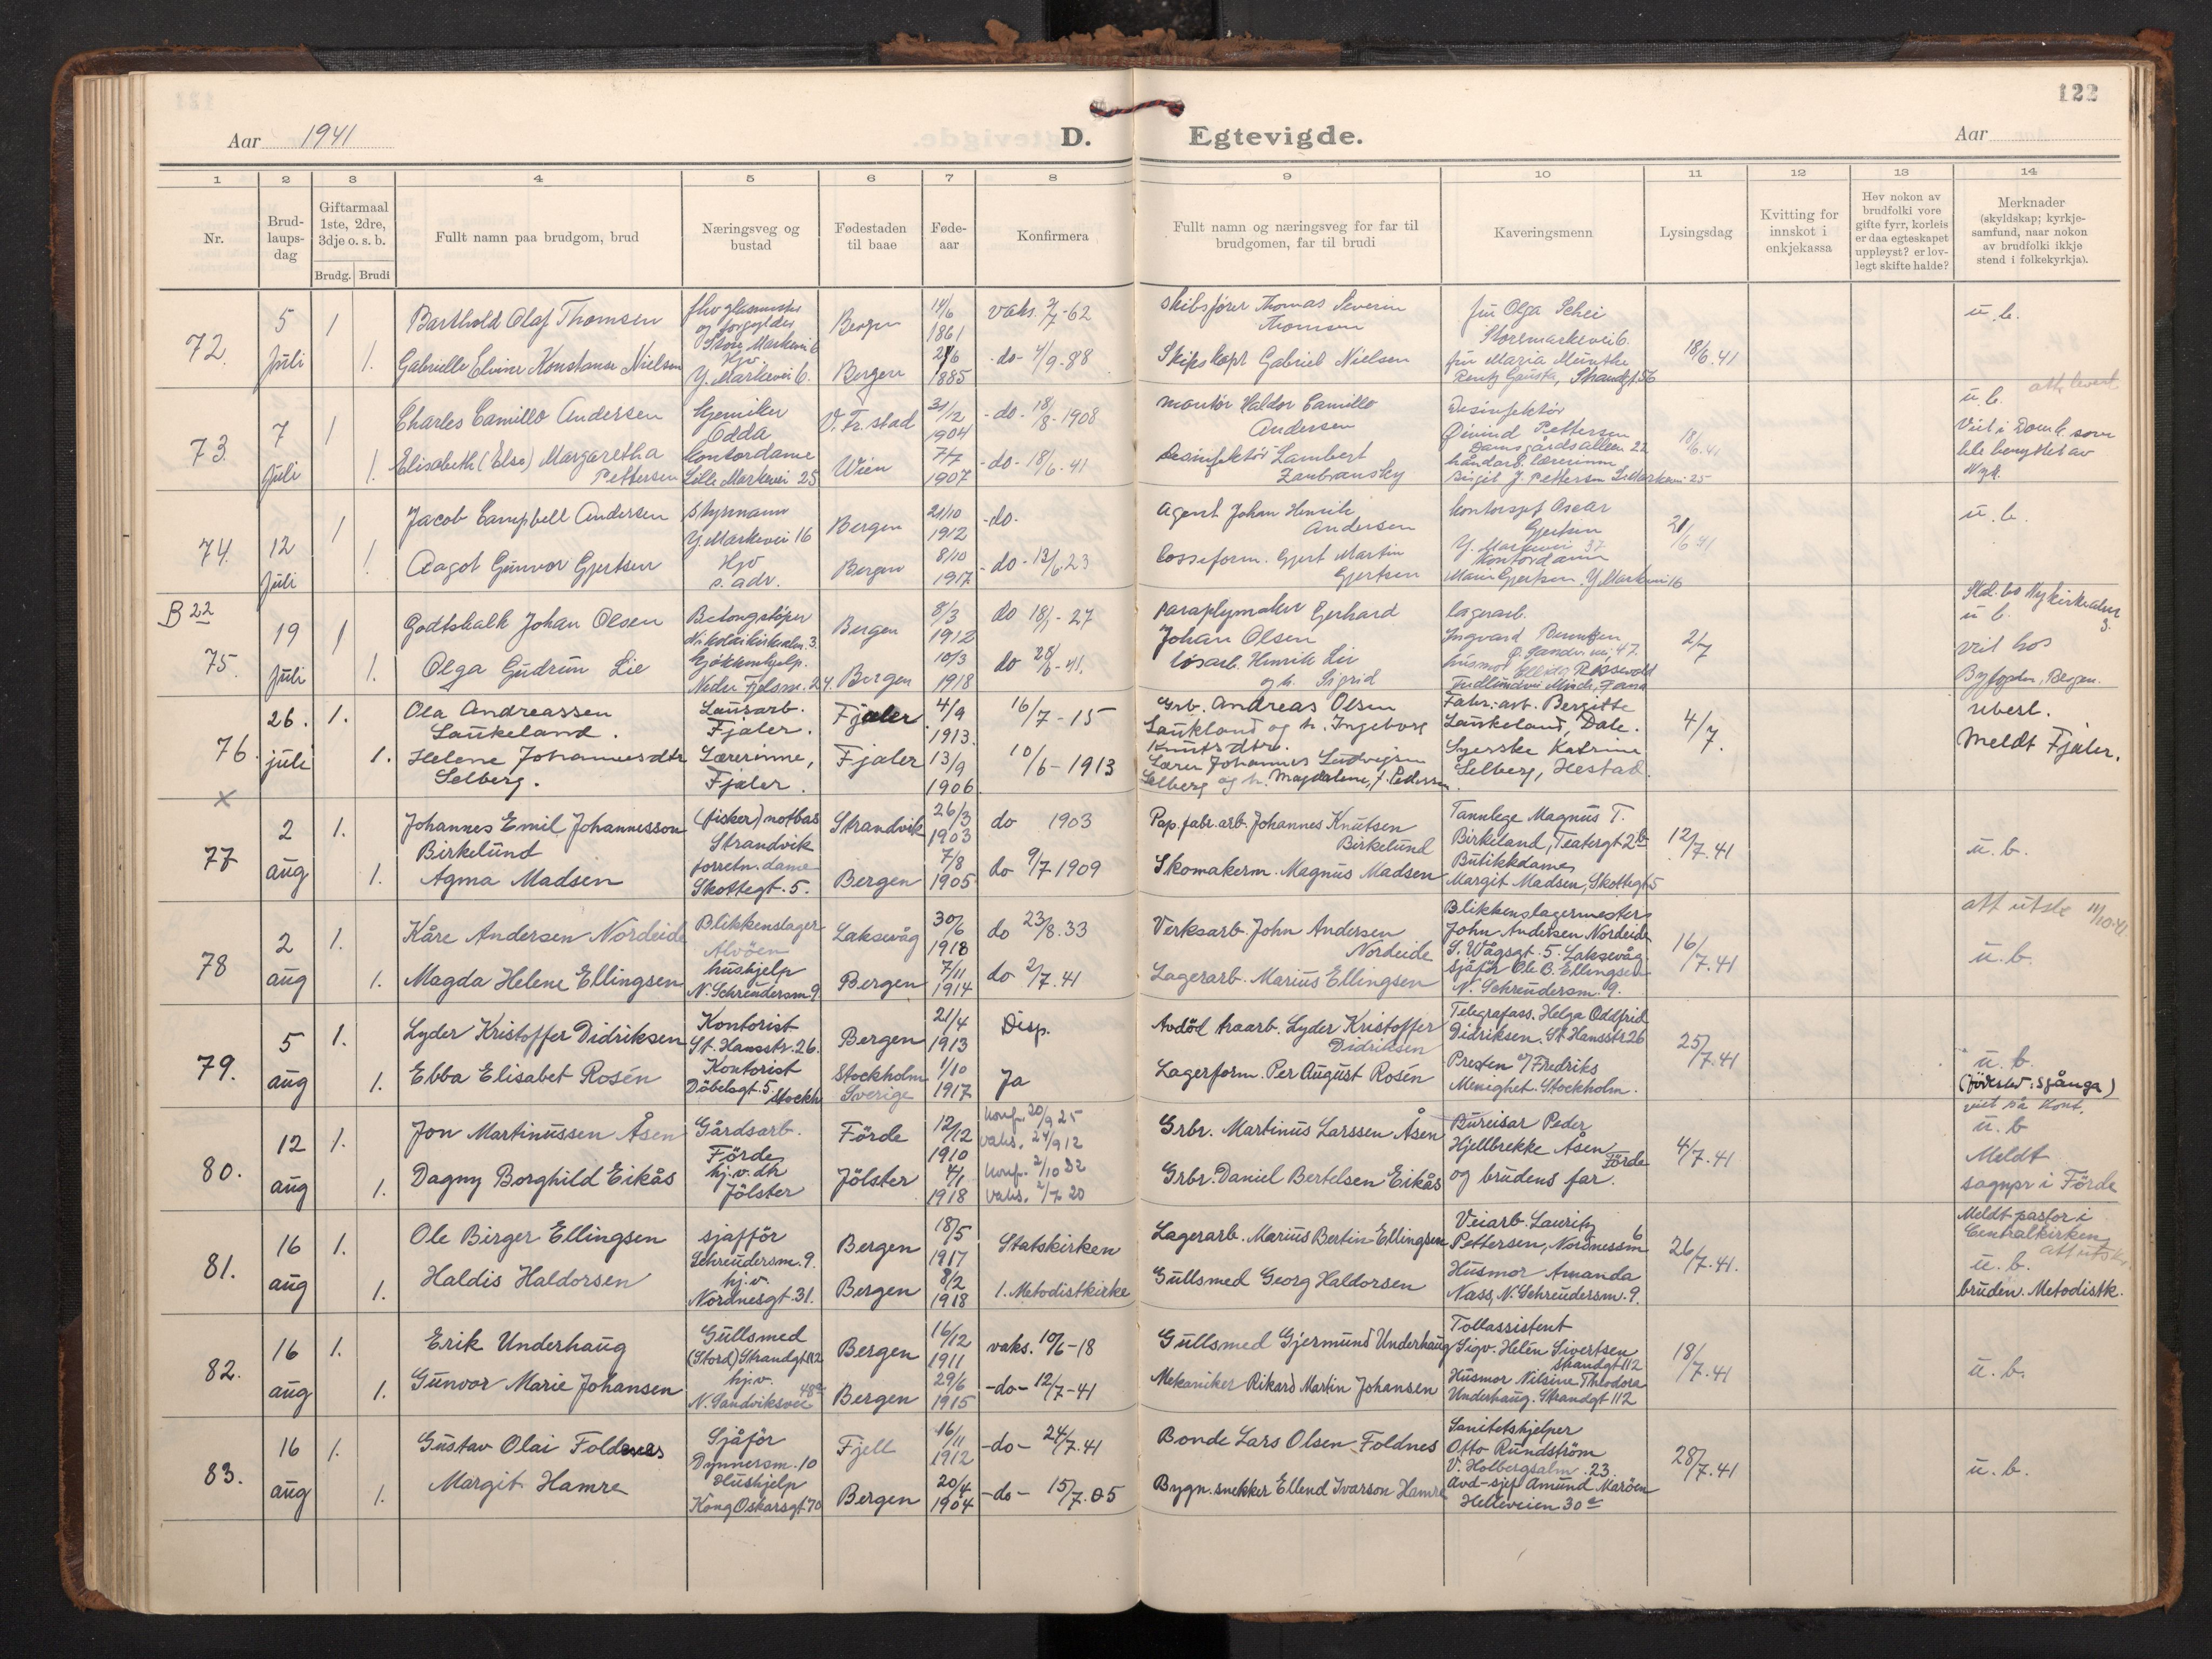 122
Aar 1941
D. Egtevigde.
Aar
1 2 3 4 5 6 7 8 9 10 11 12 13 14
Nr.
Brud-
laups-
dag
Giftarmaal
1ste, 2dre,
3dje o. s. b.
Brudg. Brudi
Fullt namn paa brudgom, brud
Næringsveg og
bustad
Fødestaden
til baae
Føde-
aar
Konfirmera
Fullt namn og næringsveg for far til
brudgomen, far til brudi
Kaveringsmenn
Lysingsdag
Kvitting for
innskot i
enkjekassa
Hev nokon av
brudfolki vore
gifte fyrr, korleis
er daa egteskapet
uppløyst? er lov-
legt skifte halde?
Merknader
(skyldskap; kyrkje-
samfund, naar nokon
av brudfolki ikkje
stend i folkekyrkja).
72.
5
Juli
1
1.
Barthold Olaf Thomsen
Gabrielle Elvine Konstanse Nielsen
fhv glassmester
og forgylder
Store Markevei 6
Hjv.
Y. Markevei 6.
Bergen
Bergen
14/6
1861
1885
vaks. -62
-do- 4/9-88
Skibsfører Thomas Severin
Thomsen
Skipskapt Gabriel Nielsen
fru Olga Schei
Storemarkevei 6.
fru Maria Munthe
Strandgt. 56
18/6.41
u.b.
73.
7
Juli
1
1.
Charles Camillo Andersen
Elisabeth (Else) Margaretha
Pettersen
kjemiker
Odda
kontordame
Lille Markevei 25
V. Fr. stad
Wien
31/2
1904
7/7
1907
-do- 18/8-1908
-do- 18/6.41
montør Haldor Camillo
Andersen
Desinfektør Lambert
Zaubransky
Desinfektør
Øivind Pettersen
Damsgårdsalleen 22
håndarb. lærerinne
Birgit J. Pettersen L. Markevei 25
18/6.41
u.b. att. levert
Viet i Domk. som
ble benyttet av
Nyk.
74.
12
Juli
1
1
Jacob Campbell Andersen
Aagot Gunvor Gjertsen
Styrmann
Y. Markevei 16
Hjv
s. adr.
Bergen
Bergen
21/10
1912
8/10
1917
-do-
-do- 13/6.23
Agent Johan Henrik
Andersen
Losseform. Gjert Martin
Gjertsen
kontorsjef Oscar
Gjertsen
Y. Markevei 37
Kontordame
Gjertsen. Y. Markevei 16
21/6 41
u.b.
B 22
75.
19
Juli
1
1.
Godtskalk Johan Olsen
Olga Gudrun Lie
Betongstøper
Nikolaikirkealm. 3
Kjøkkenhjelp.
Nedre Fjelsm. 24.
Bergen
Bergen
8/3
1912
10/3
1918
do 18/ - 27
do 28/6-41.
Paraplymaker Gerhard
Johan Olsen
løsarb. Henrik Lie
og h. Sigrid
lagerarb.
Ingvard
husmor
2/7
Skl. bo Nykirkealm
3.
u b.
viet hos
Byfogden, Bergen.
76.
26.
juli
1.
1.
Ola Andreassen
Laukeland.
Helene Johannesdtr
Selberg.
Lausarb.
Fjaler.
Lærerinne,
Fjaler.
Fjaler
Fjaler
4/9
1913.
13/9
1906.
16/7-15
10/6-1913
Grb. Andreas Olsen
Laukland og h. Ingeborg
Knutsdtr.
Lærer Johannes Ludvigsen
Selberg og h. Magdalene, f. Pedersen
Fabr. arb. Bergitte
Laukeland, Dale.
Syerske Katrine
Selberg, Hestad.
4/7.
ubesl.
Meldt Fjaler.
×
77
2
aug
1.
1.
Johannes Emil Johannesson
Birkelund
Agma Madsen
(fisker) notbas
Strandvik
forretn. dame
Skottegt. 5.
Strandvik
Bergen
26/3
1903
7/8
1905
do 1903
do 9/7 1909
Pap. fabr. arb. Johannes Knutsen
Birkelund
Skomakerm. Magnus Madsen
Tannlege Magnus T.
Birkeland, Teatergt 2b
Butikkdame
Margit Madsen, Skottegt 5
12/7.41
u.b.
78
2
aug
1.
1.
Kåre Andersen Nordeide
Magda Helene Ellingsen
Blikkenslager
Alvöen
hushjelp
N. Schreudersm. 9
Laksevåg
Bergen
30/6
1918
7/11
1914
do 23/8.33
do 2/7.41
Verksarb. John Andersen
Nordeide
Lagerarb. Marius Ellingsen
Blikkenslagermester
John Andersen Nordeide
S. Wågsgt. 5. Laksevåg
Sjåför Ole B. Ellingsen
N. Schreudersm. 9.
16/7.41
att utst 11/10.41
u.b.
79.
5
aug
1.
1.
Lyder Kristoffer Didriksen
Ebba Elisabet Rosén
Kontorist
St. Hansstr. 26.
Kontorist
Döbelsgt. 5. Stockh
Bergen
Stockholm
Sverige
21/4
1913
1/10
1917
Disp.
Ja
Avdöd traarb. Lyder Kristoffer
Didriksen
Lagerform. Per August Rosén
Telegrafass. Helga Oddfrid
Didriksen. St. Hansstr 26
Presten v/ Fredriks
Menighet. Stockholm.
25/7.41
u.b.
(födested: Spånga)
80.
12
aug
1.
1.
Jon Martinussen Åsen
Dagny Borghild Eikås
Gårdsarb.
Förde
hj.v. dh
Jölster
Förde
Jölster
12/12
1910
4/1
1918
konf. 20/9 25
vaks. 24/9 12
konf. 2/10 32
vaks. 2/7 20
Grbr. Martinus Larssen Åsen
Grbr. Daniel Bertelsen Eikås
Bureisar Peder
Hjellbrekke Åsen
Förde
og brudens far.
4/7.41
viet på kont.
u.b
Meldt
sognpr i Förde
81.
16
aug
1.
1.
Ole Birger Ellingsen
Haldis Haldorsen
sjafför
Schreudersm. 9.
hj.v.
Nordnesgt. 31.
Bergen
Bergen
18/5
1917
8/2
1918
Statskirken
1. Metodistkirke
Lagerarb. Marius Bertin Ellingsen
Gullsmed Georg Haldorsen
Veiarb. Lauritz
Pettersen, Nordnessm 6
Husmor Amanda
Nass, N. Schreudersm. 9.
26/7.41.
Meldt pastor i
Centralkirken
att utsk.
u.b.
bruden. Metodistk.
82.
16
aug
1.
1.
Erik Underhaug
Gunvor Marie Johansen
Gullsmed
(Stord) Strandgt 112
hj.v.
N. Sandviksvei 48a
Bergen
Bergen
16/12
1911
29/6
1915
vaks. 10/6-18
-do- 12/7-41
Gullsmed Gjermund Underhaug
Mekaniker Rikard Martin Johansen
Tollassistent
Sigv. Helén Sivertsen
Strandgt 112
Husmor Nilsine Theodora
Underhaug. Strandgt 112
18/7.41
u.b.
83.
16
aug
1.
1.
Gustav Olai Foldnes
Margit Hamre
Sjåför
Dynnersm. 10
Hushjelp
Kong Oskarsgt 70
Fjell
Bergen
16/11
1912
20/4
1904
-do- 24/7.41
-do- 15/7.05
Bonde Lars Olsen Foldnes
Bygn. snekker Ellend Ivarson Hamre
Sanitetshjelper
Otto Rundström
V. Holbergsalm. 23.
Avd-sjef Amund Maröen
Helleveien 30a
28/7.41
u.b.